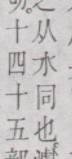 之从水同也
十四十五